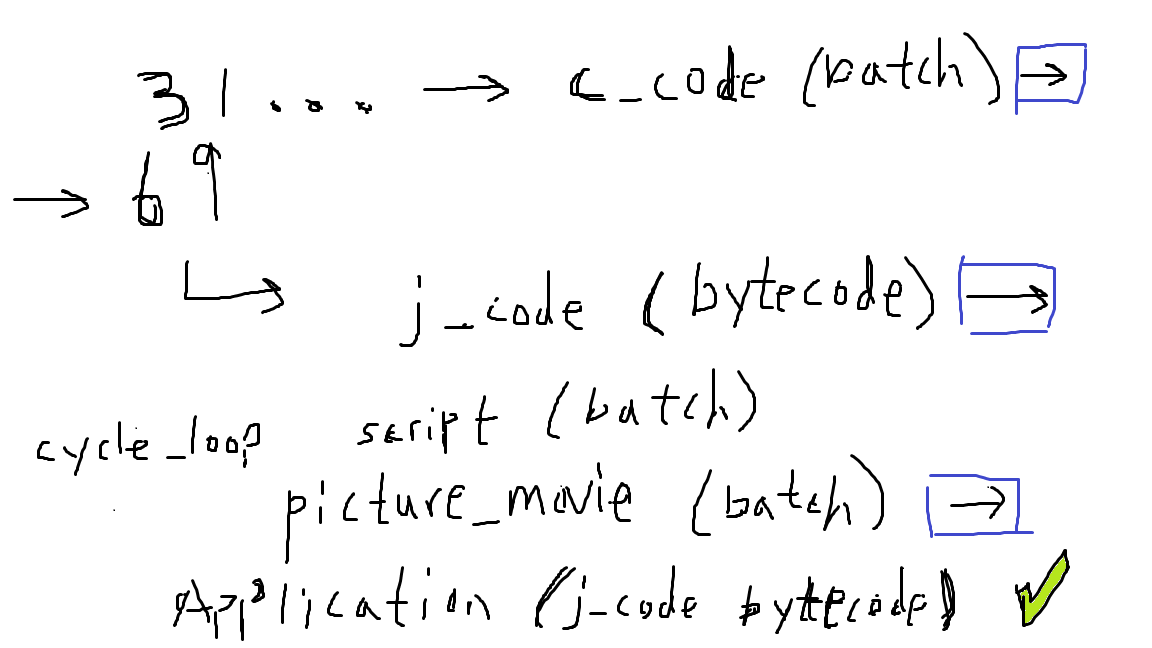 31 ... → c_code (batch) →
→ 69
j_code (bytecode) →
cycle_loop script (batch)
picture_movie (batch) →
Application (j_code bytecode) ✓